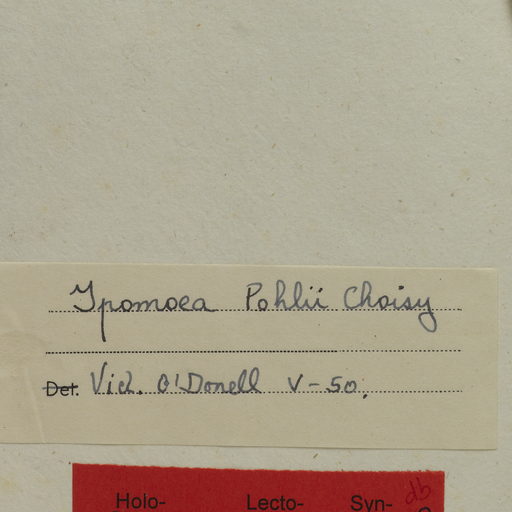 Ipomoea Pohlii Choisy
Det. Vid. O'Donell V-50.
Holo- Lecto- Syn-
db